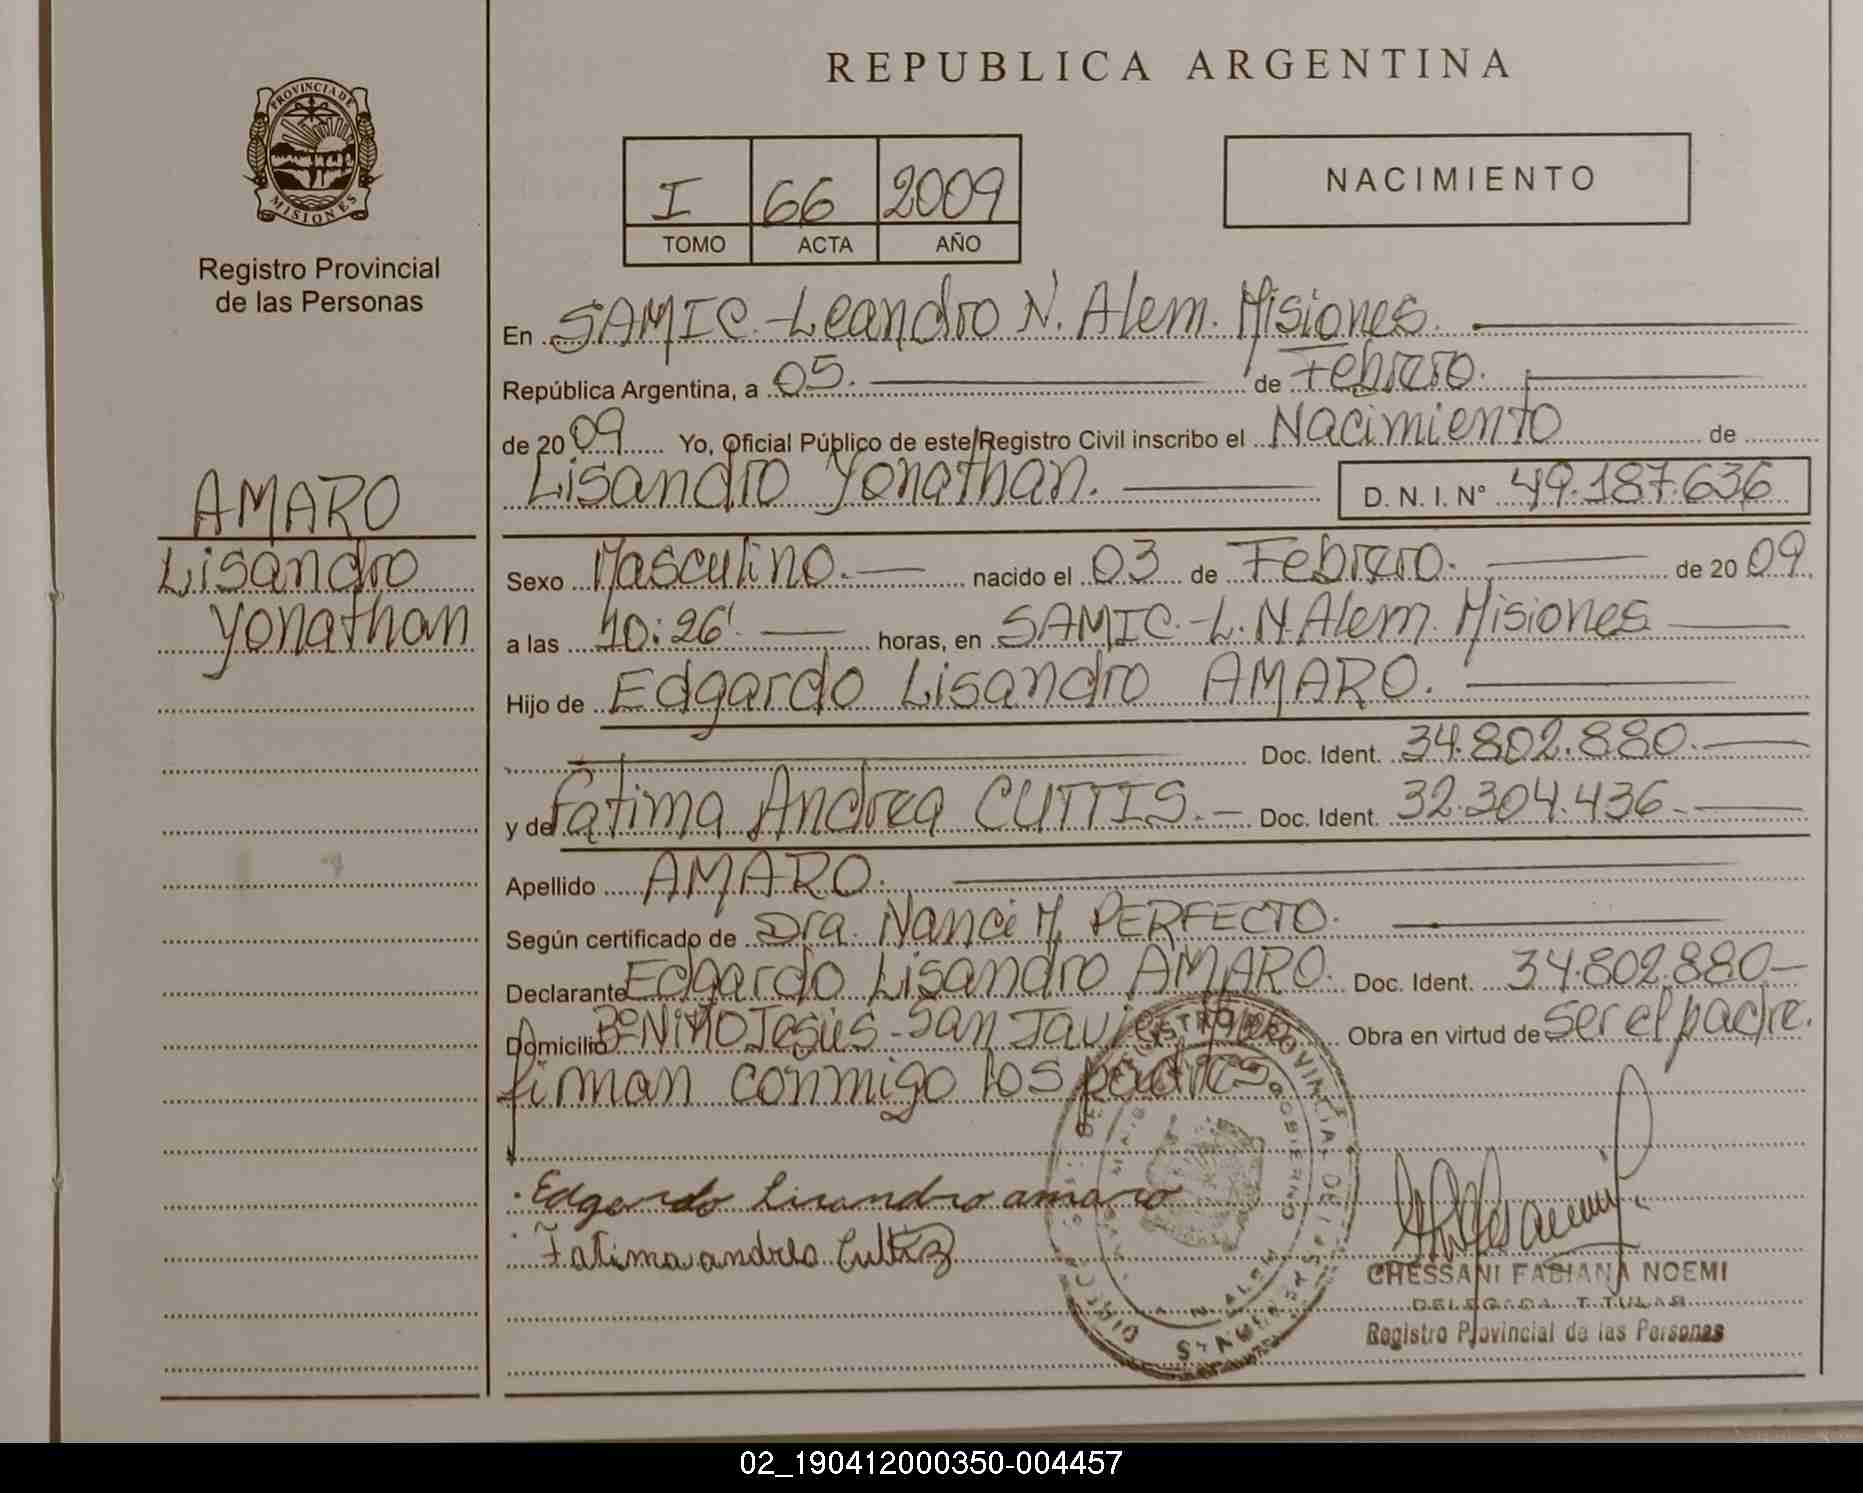 REPUBLICA ARGENTINA
PROVINCIA DE
MISIONES
Registro Provincial
de las Personas
I 66 2009
TOMO ACTA AÑO
NACIMIENTO
En SAMIC.-Leandro N. Alem. Misiones.
República Argentina, a 05. de Febrero.
de 2009 Yo, Oficial Público de este Registro Civil inscribo el Nacimiento de
Lisandro Yonathan. D. N. I. N° 49.187.636
AMARO
Lisandro
Yonathan
Sexo Masculino. nacido el 03 de Febrero. de 2009.
a las 10:26'. horas, en SAMIC.-L.N.Alem. Misiones
Hijo de Edgardo Lisandro AMARO.
Doc. Ident. 34.802.880.
y de Fatima Andrea CUTTIS.- Doc. Ident. 32.304.436.
Apellido AMARO.
Según certificado de Dra. Nanci M. PERFECTO.
Declarante Edgardo Lisandro AMARO. Doc. Ident. 34.802.880-
Domicilio B° Niño Jesús - San Javier Obra en virtud de ser el padre.
firman conmigo los padres
Edgardo Lisandro amaro
Fatima andrea
CHESSANI FABIANA NOEMI
DELEGADA TITULAR
Registro Provincial de las Personas
02_190412000350-004457